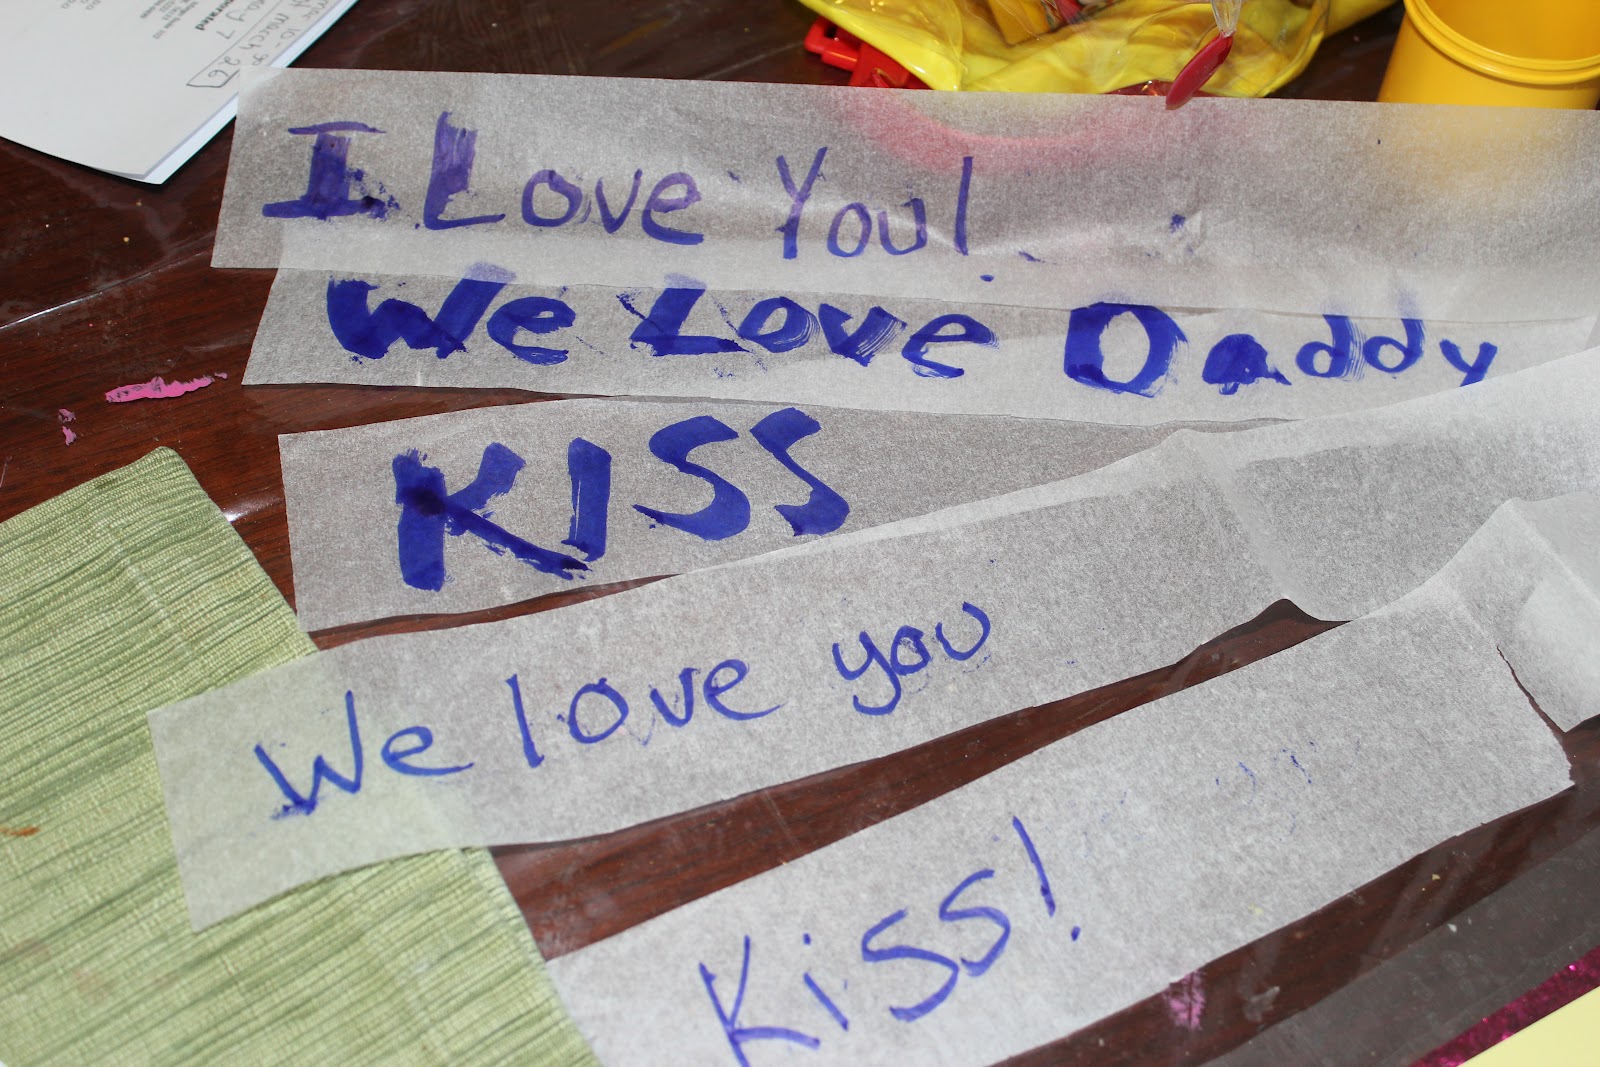 I Love You!
We Love Daddy
KISS
We love you
Kiss!